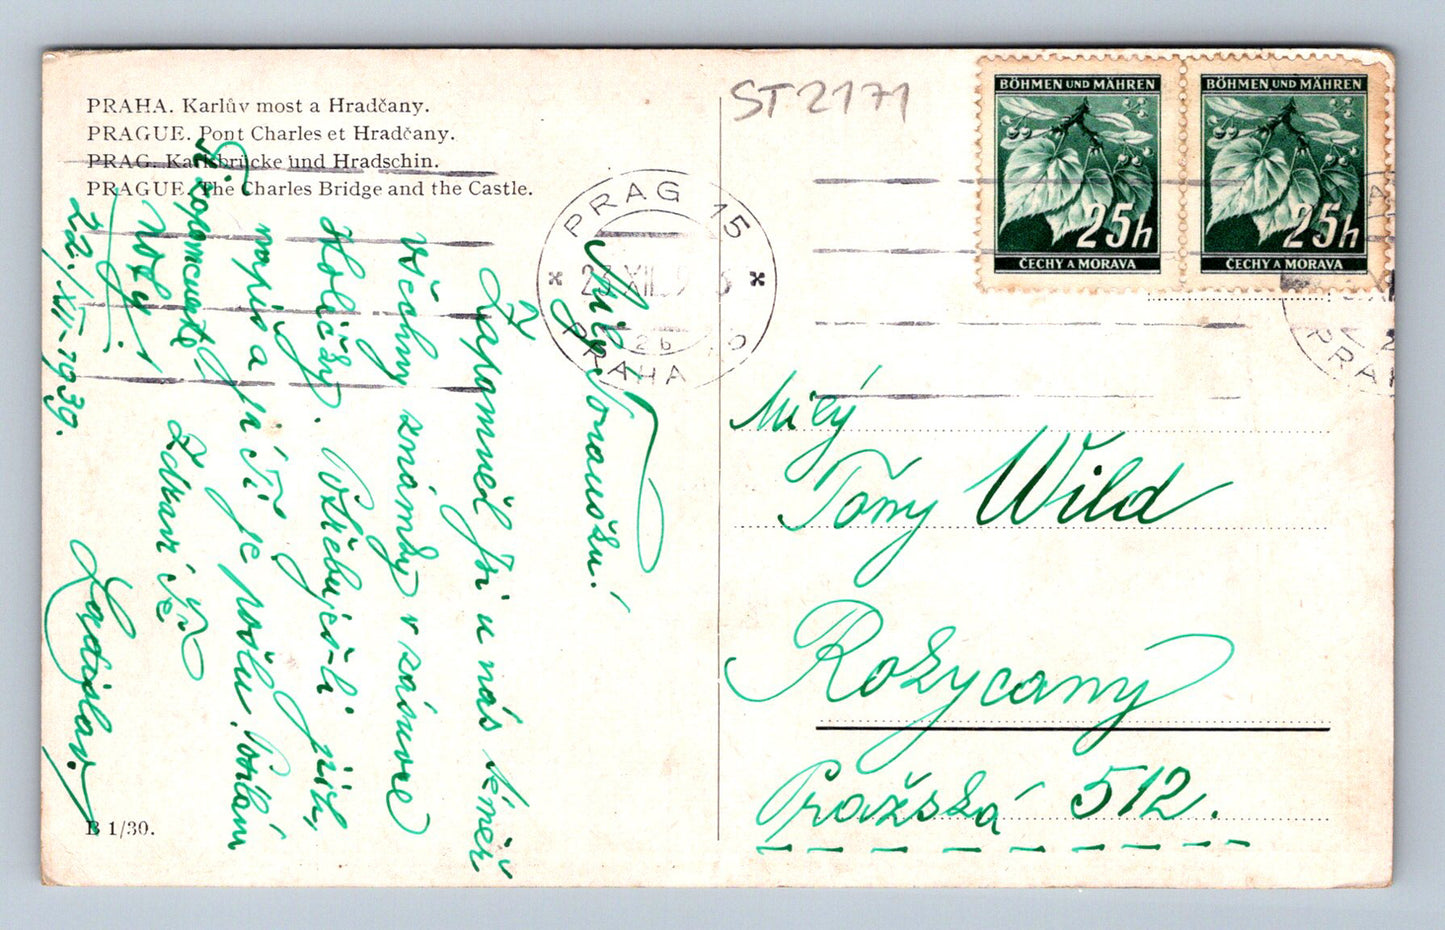 PRAHA. Karlův most a Hradčany.
PRAGUE. Pont Charles et Hradčany.
PRAG. Karlsbrücke und Hradschin.
PRAGUE. The Charles Bridge and the Castle.
ST2171
BÖHMEN UND MÄHREN
25h
ČECHY A MORAVA
BÖHMEN UND MÄHREN
25h
ČECHY A MORAVA
PRAG 15
XII
PRAHA
PRAHA
Milý
Zapomněl jsi u nás téměř
všechny známky v zásuvce
Holičky. Potřebuješ-li jich,
napiš a já Ti je pošlu. Posílám
noty!
Zdraví Tě
Ladislav.
22./XII-1939.
Milý
Tony Wild
Rožycany
Pražská 512.
B 1/30.